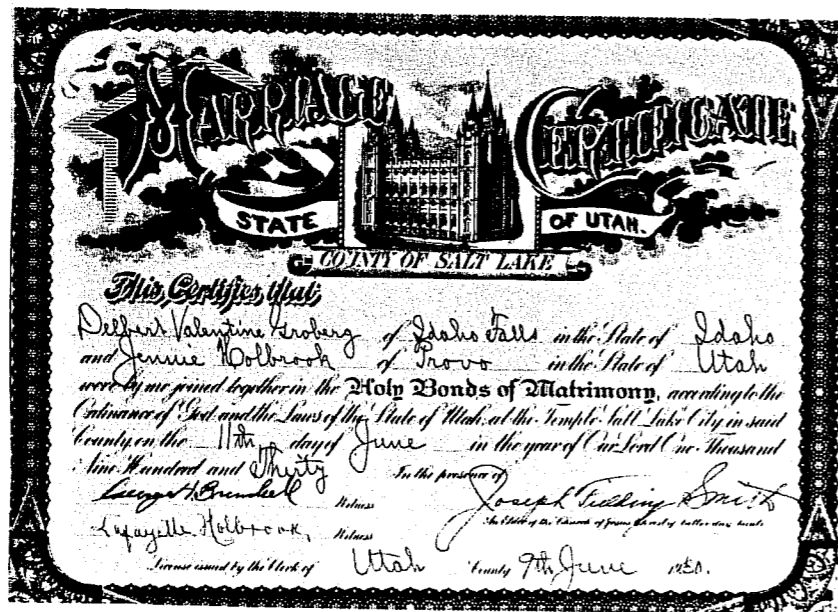 MARRIAGE CERTIFICATE
STATE OF UTAH.
COUNTY OF SALT LAKE
This Certifies that
Delbert Valentine Groberg of Idaho Falls in the State of Idaho
and Jennie Holbrook of Provo in the State of Utah
were by me joined together in the Holy Bonds of Matrimony, according to the
Ordinance of God and the Laws of the State of Utah, at the Temple Salt Lake City in said
County, on the 11th day of June in the year of Our Lord One Thousand
Nine Hundred and Thirty
In the presence of
Witness
Joseph Fielding Smith
An Elder of the Church of Jesus Christ of Latter-day Saints
Lafayette Holbrook, Witness
License issued by the Clerk of Utah County 9th June 1930.